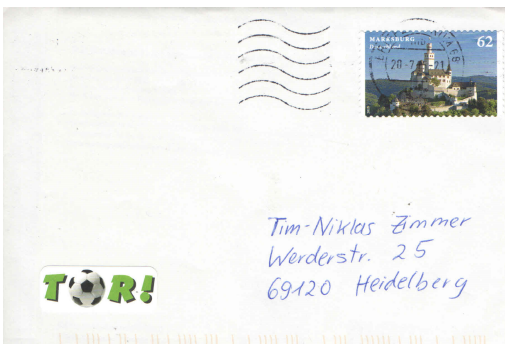 MARKSBURG 62
Deutschland
Tim-Niklas Zimmer
Werderstr. 25
69120 Heidelberg
TOR!